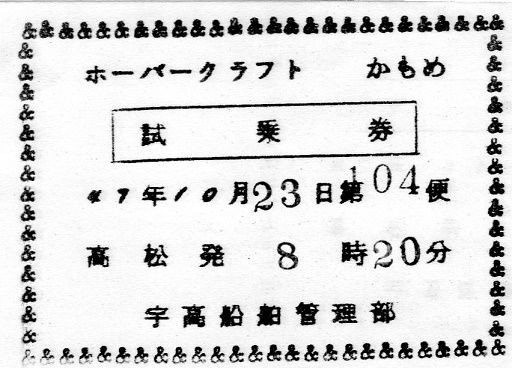 ホーバークラフト かもめ
試乗券
47年10月23日第104便
高松発 8時20分
宇高船舶管理部